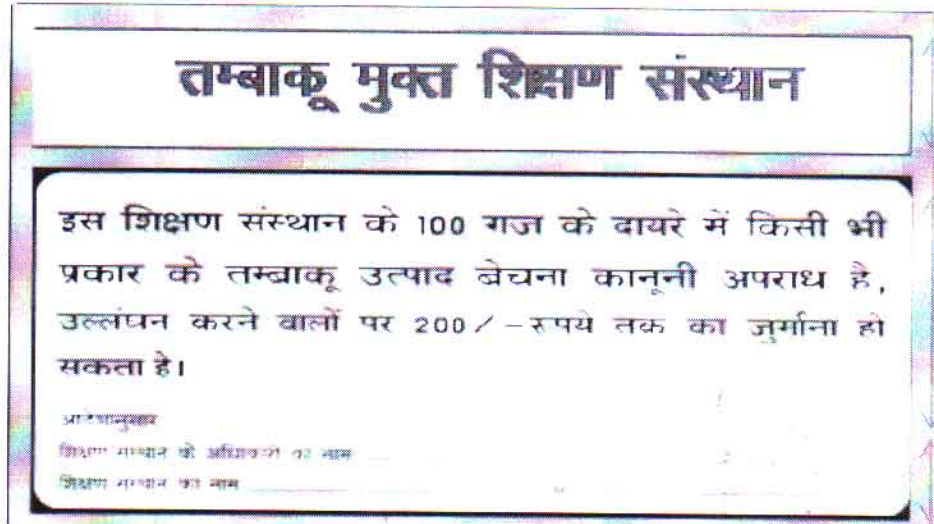 तम्बाकू मुक्त शिक्षण संस्थान
इस शिक्षण संस्थान के 100 गज के दायरे में किसी भी
प्रकार के तम्बाकू उत्पाद बेचना कानूनी अपराध है,
उल्लंघन करने वालों पर 200/-रूपये तक का जुर्माना हो
सकता है।
आदेशानुसार
शिक्षण संस्थान के अधिकारी का नाम
शिक्षण संस्थान का नाम